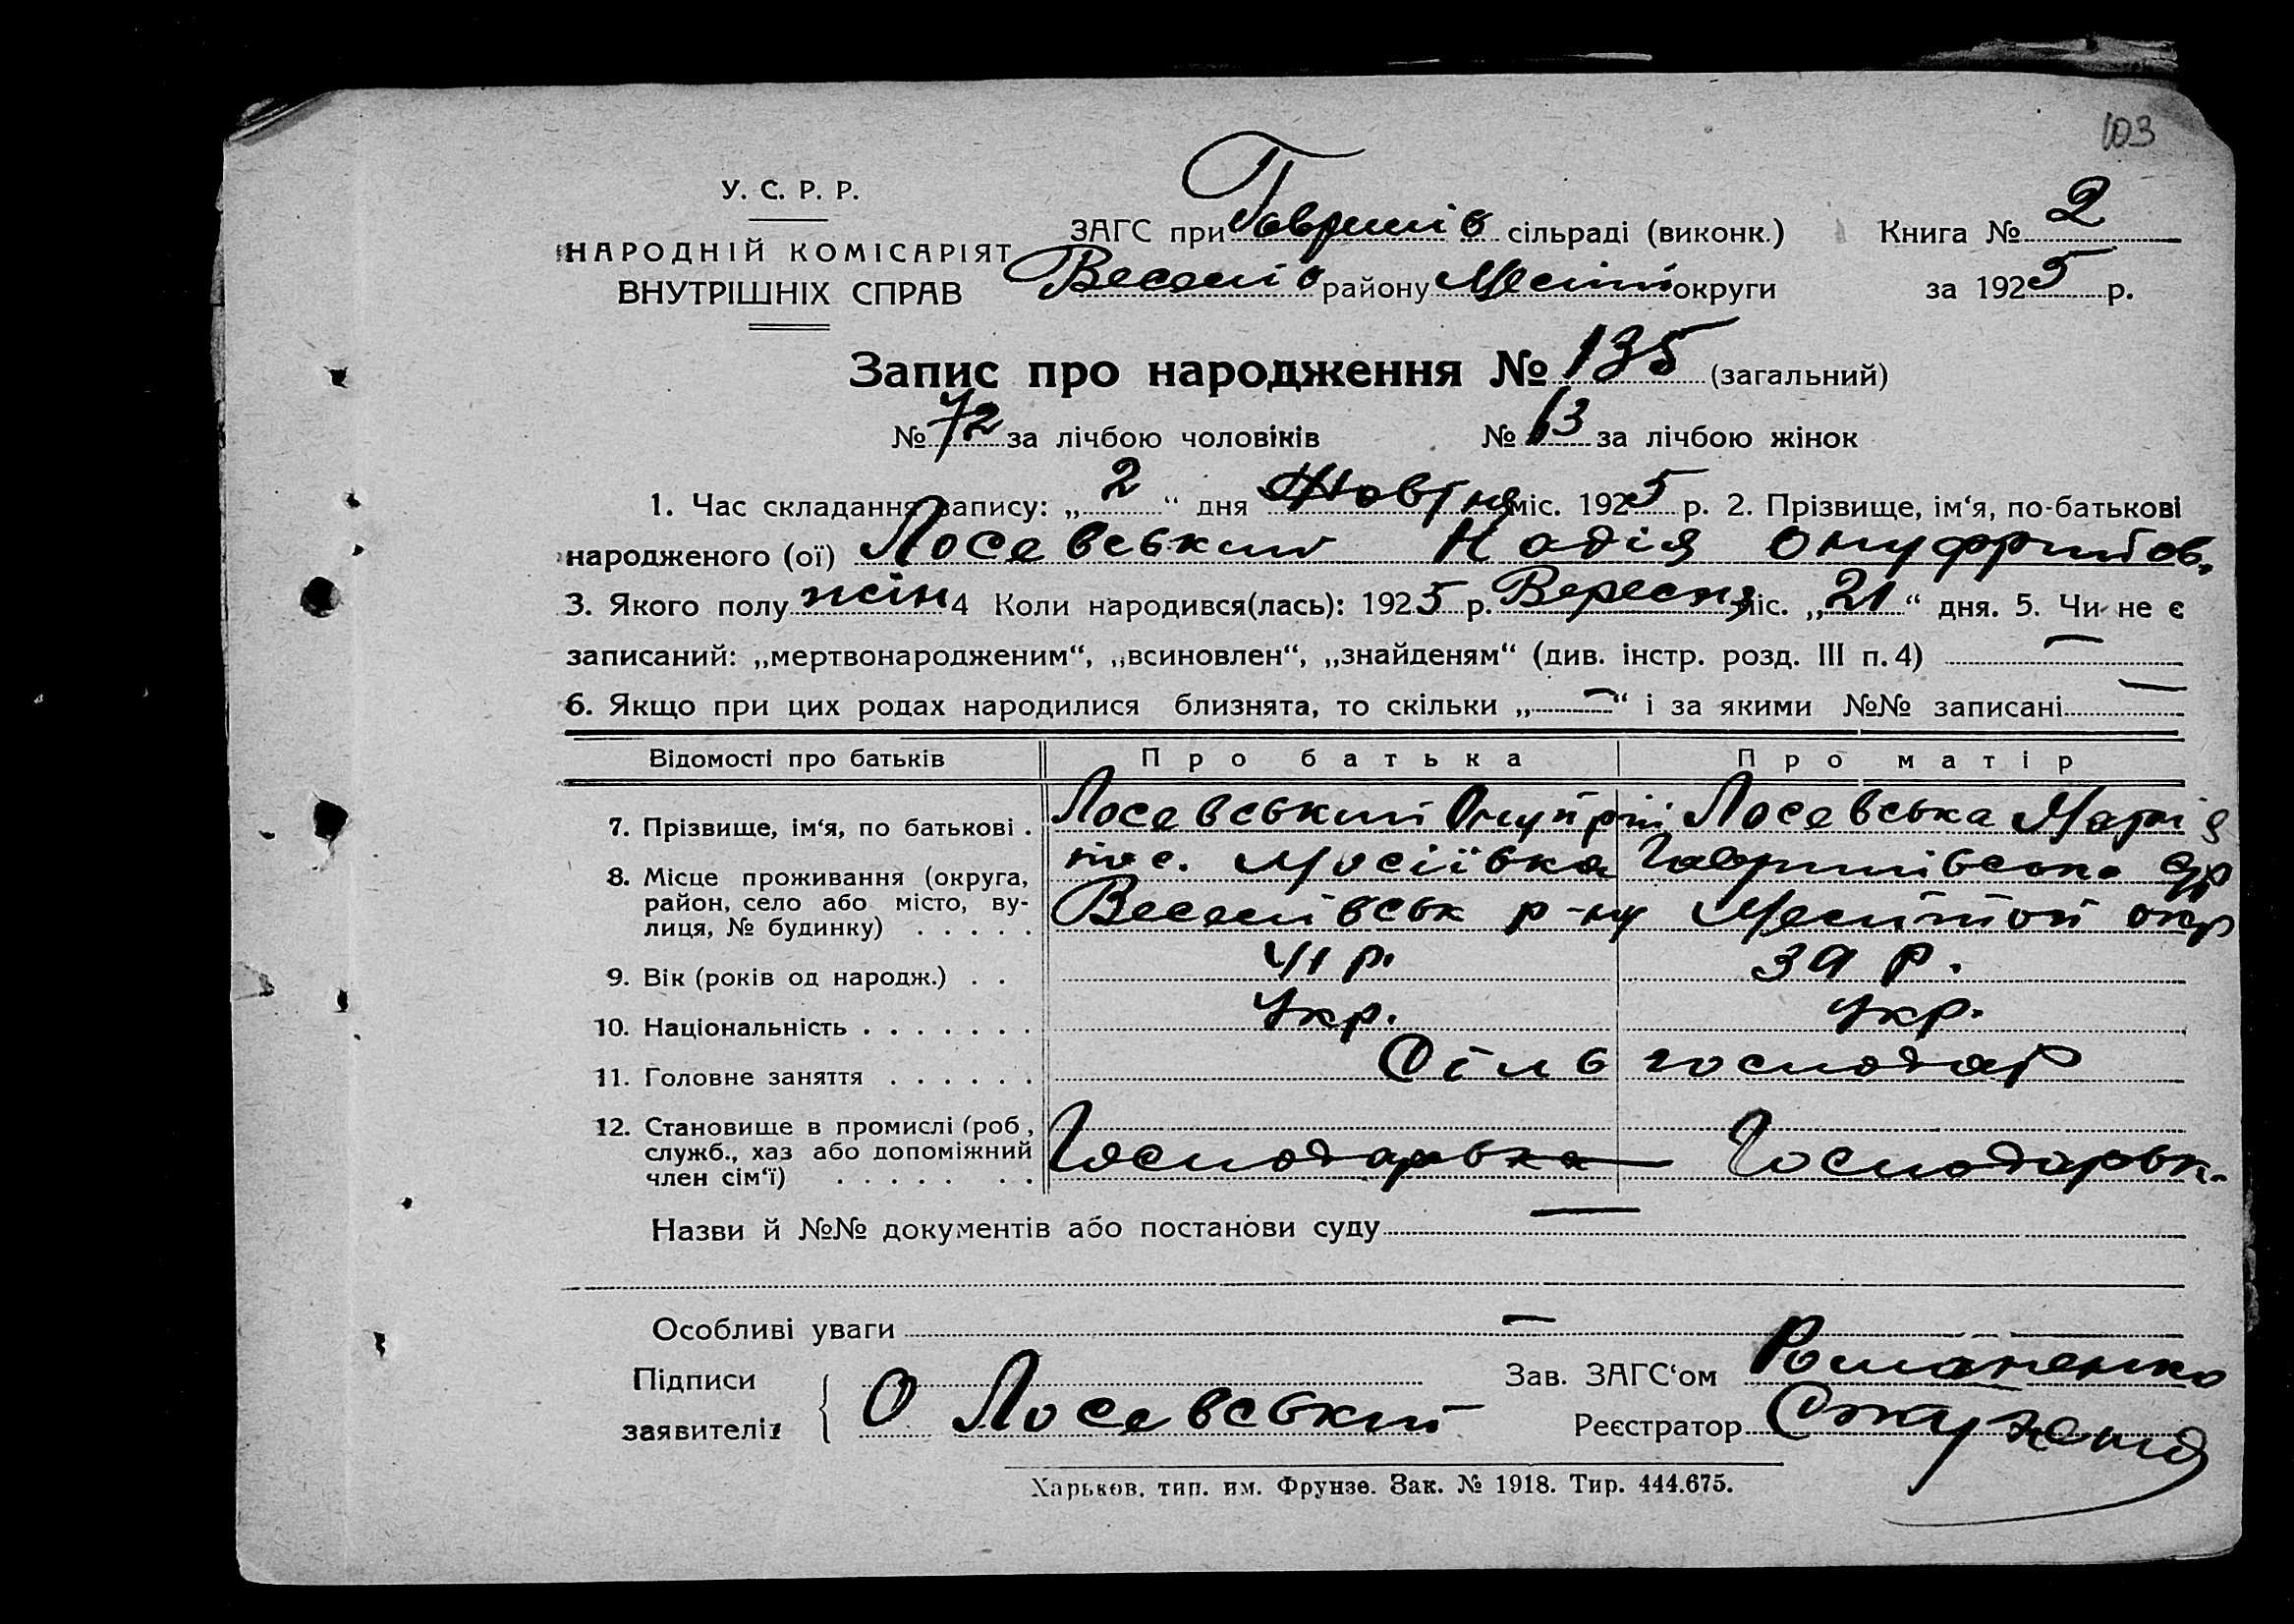 103
У. С. Р. Р.
НАРОДНІЙ КОМІСАРІЯТ
ВНУТРІШНІХ СПРАВ
ЗАГС при Гаврилів сільраді (виконк.) Книга № 2
Веселів району Меліт округи за 1925 р.
Запис про народження № 135 (загальний)
№ 72 за лічбою чоловіків № 63 за лічбою жінок
1. Час складання запису: „ 2 “ дня Жовтня міс. 1925 р. 2. Прізвище, ім‘я, по-батькові
народженого (ої) Лосевський Надія Онуфрийов.
3. Якого полу жін 4 Коли народився(лась): 1925 р. Вересня міс. „ 21 “ дня. 5. Чи не є
записаний: „мертвонародженим“, „всиновлен“, „знайденям“ (див. інстр. розд. III п. 4) —
6. Якщо при цих родах народилися близнята, то скільки „ — “ і за якими №№ записані —
Відомості про батьків Про батька Про матір
7. Прізвище, ім‘я, по батькові . Лосевський Онупрій Лосевська Марія
8. Місце проживання (округа, район, село або місто, вулиця, № будинку) . . . . . пос. Мусіївка
Веселівськ р-ну Мелітой окр
9. Вік (років од народж.) . . 41 р. 39 р.
10. Національність . . . . . . . Укр. Укр.
11. Головне заняття . . . . . . Сільгосподар
12. Становище в промислі (роб, служб., хаз або допоміжний член сім‘ї) . . . . . . . Господарька Господарьк.
Назви й №№ документів або постанови суду —
Особливі уваги —
Підписи заявителів { О Лосевський
Зав. ЗАГС‘ом Романенко
Реєстратор
Харьков, тип. им. Фрунзе. Зак. № 1918. Тир. 444.675.